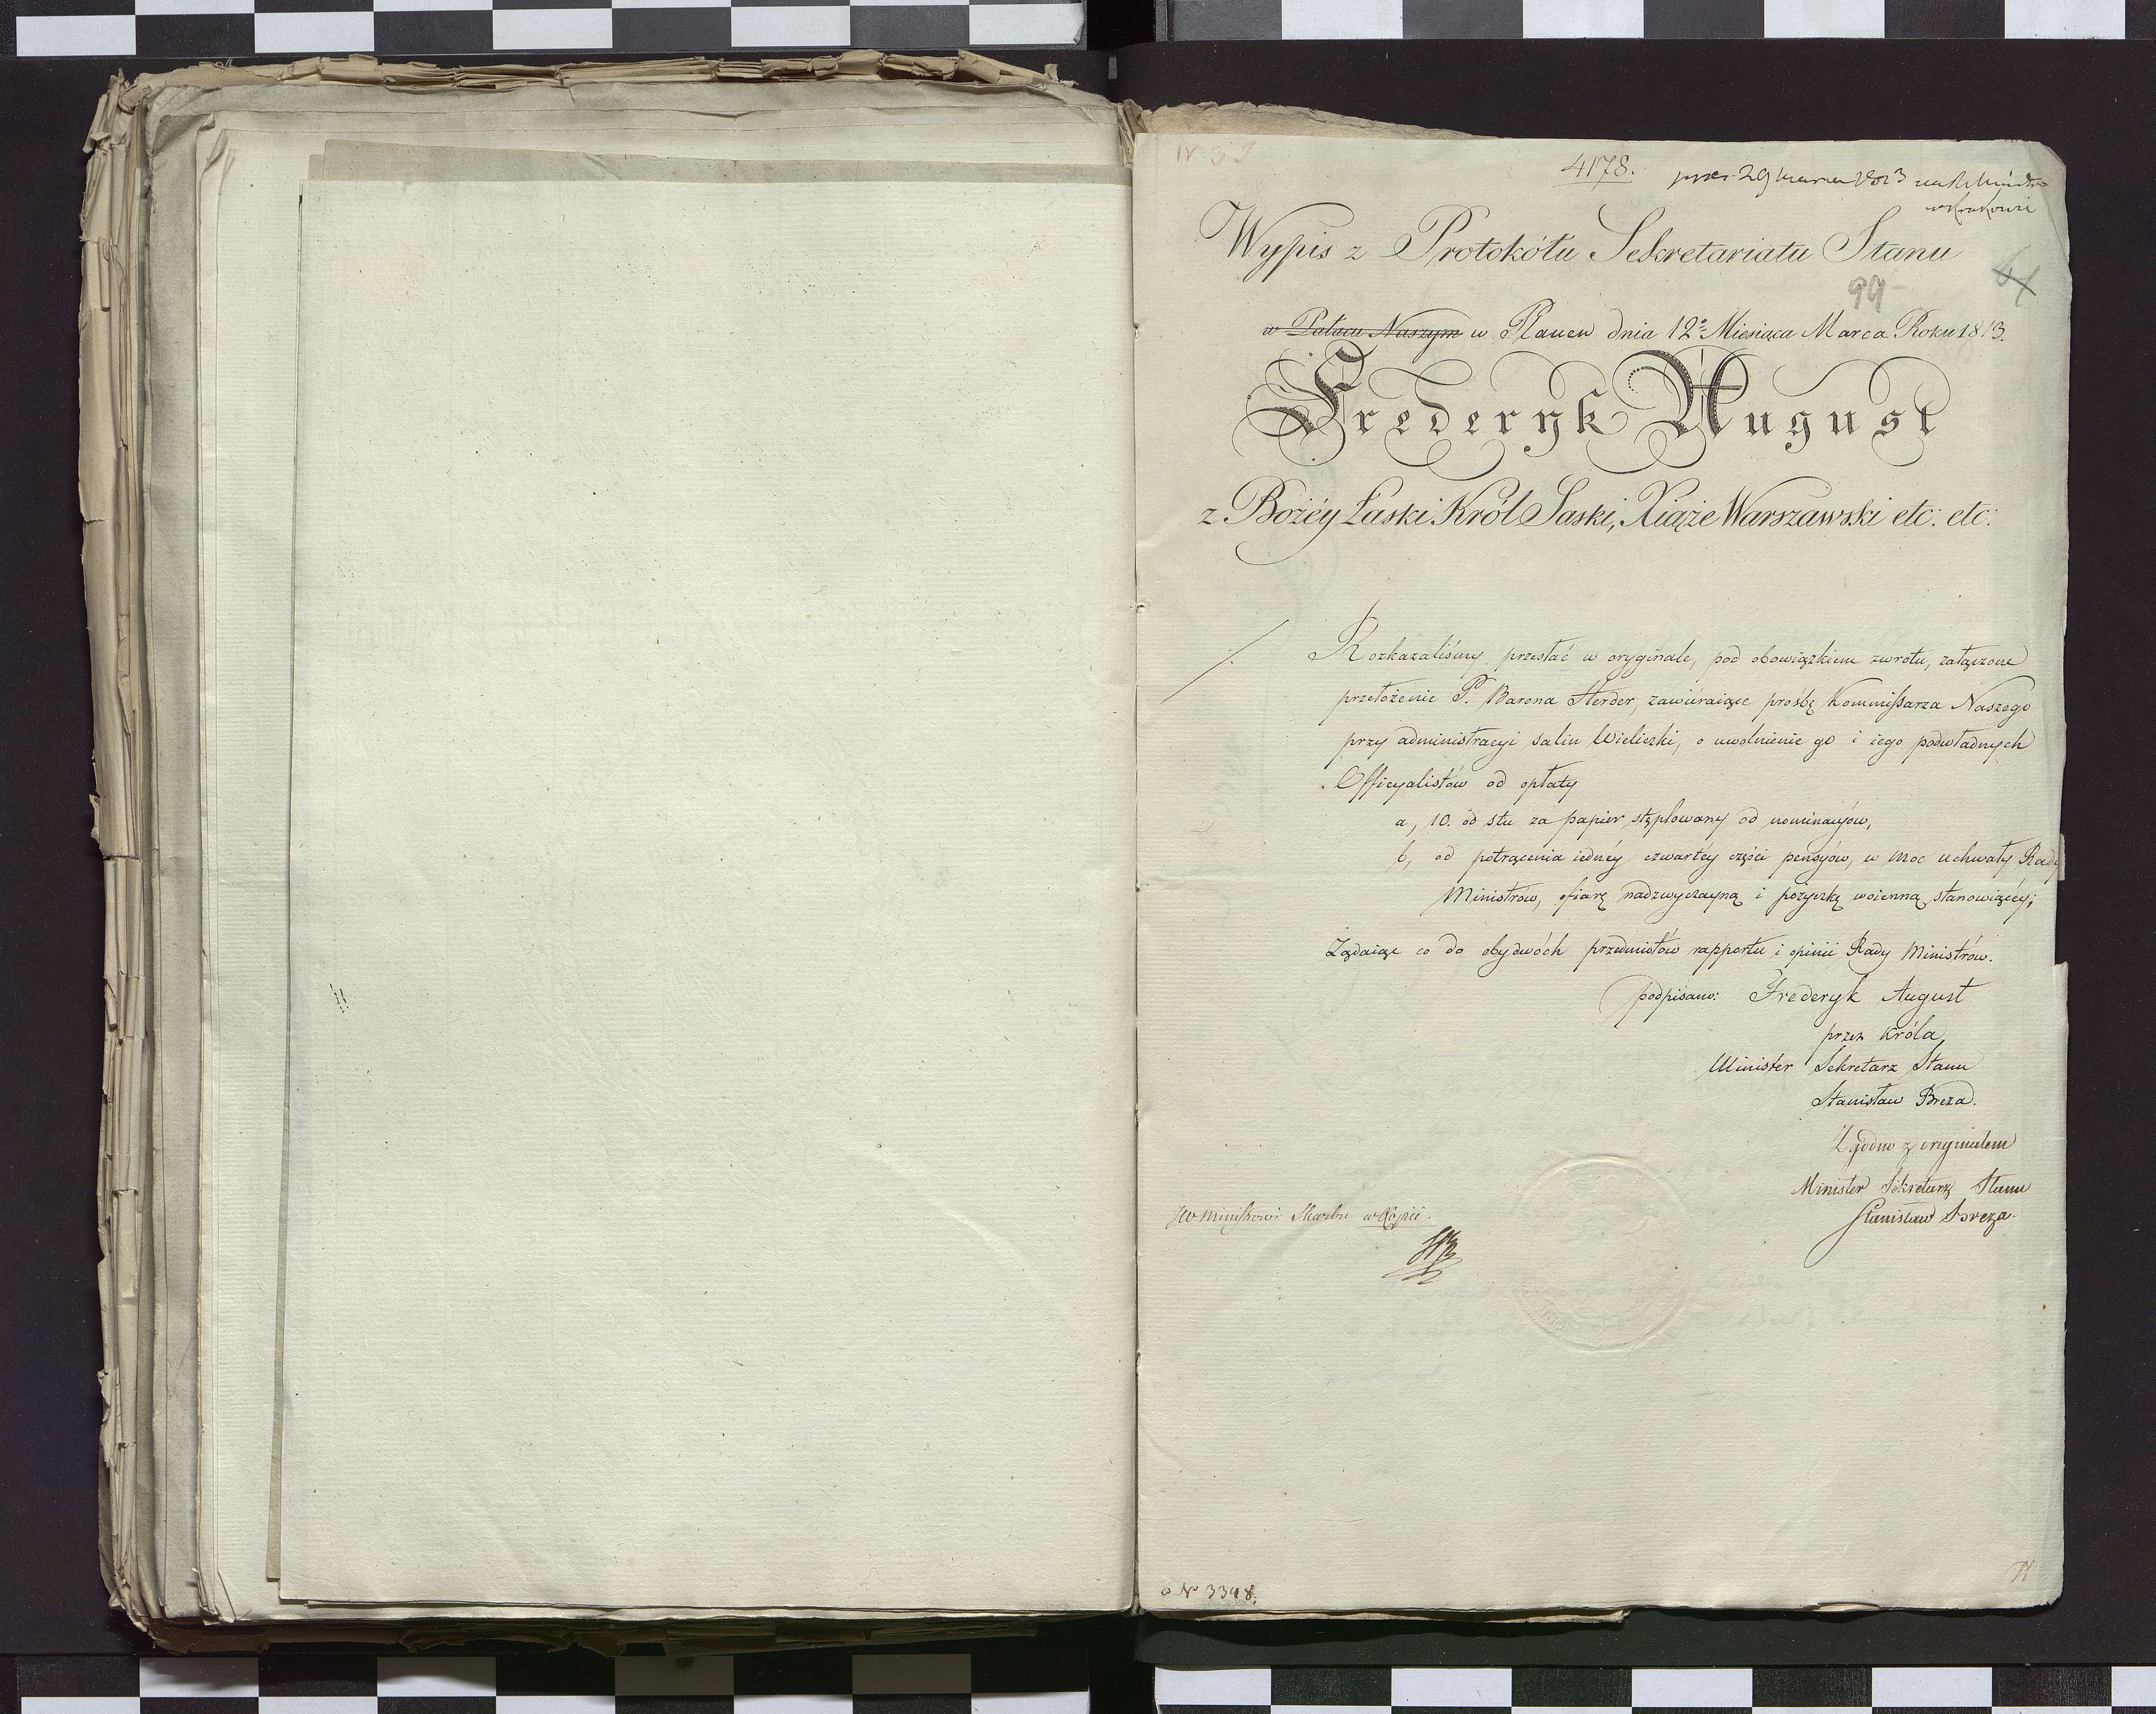 N 33
4178.
prez. 29 Marca 1813
w Krakowie
Wypis z Protokółu Sekretariatu Stanu
99
w Pałacu Naszym w Plauen dnia 12º Miesiąca Marca Roku 1813.
Frederyk August
z Bożéy Łaski Król Saski, Xiąże Warszawski etc: etc:
Rozkazaliśmy przesłać w oryginale, pod obowiązkiem zwrotu, załączone
przełożenie P. Barona Herder, zawiéraiące prośbę Kommissarza Naszego
przy administracyi salin Wieliczki, o uwolnienie go i iego podwładnych
Officyalistów od opłaty
a, 10. od stu za papier stęplowany od nominacyów,
b, od potrącenia iednéy czwartéy części pensyów, w moc uchwały Rady
Ministrów, ofiarę nadzwyczayną i pożyczkę woienną stanowiącéy;
Żądaiąc co do obydwóch przedmiotów rapportu i opinii Rady Ministrów.
podpisano: Frederyk August
przez Króla,
Minister Sekretarz Stanu
Stanisław Breza.
Zgodno z oryginałem
Minister Sekretarz Stanu
Stanisław Breza.
JW Ministrowi Skarbu w Kopii.
a Nº 3348.